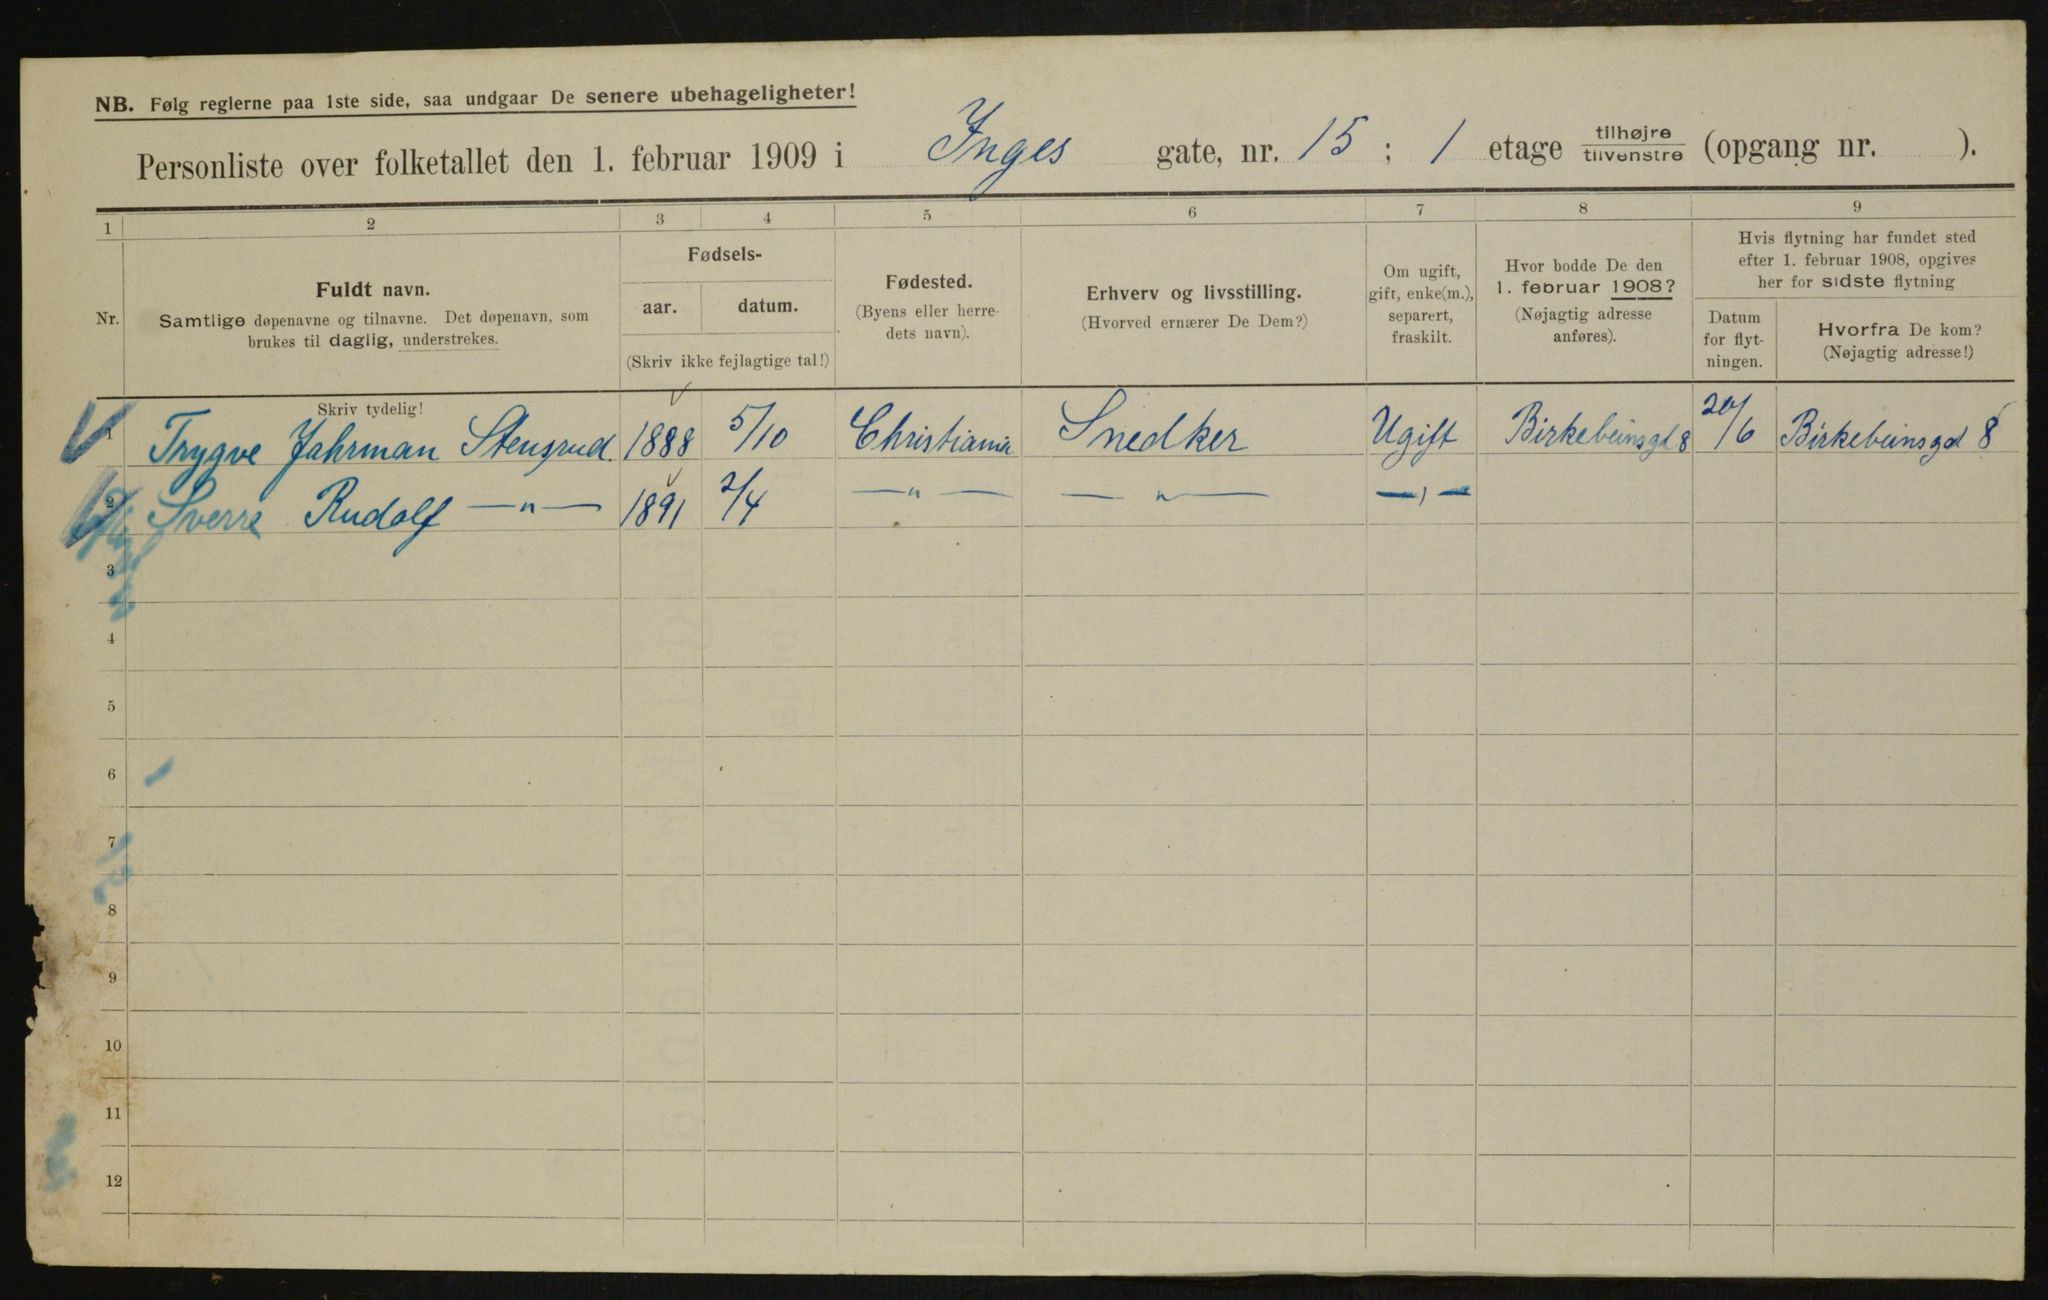 NB. Følg reglerne paa 1ste side, saa undgaar De senere ubehageligheter!
Personliste over folketallet den 1. februar 1909 i Inges gate, nr. 15 ; 1 etage tilhøjre/tilvenstre (opgang nr. ).
1 2 3 4 5 6 7 8 9
Nr.
Fuldt navn.
Samtlige døpenavne og tilnavne. Det døpenavn, som
brukes til daglig, understrekes.
Skriv tydelig!
Fødsels-
aar. datum.
(Skriv ikke fejlagtige tal!)
Fødested.
(Byens eller herre-
dets navn).
Erhverv og livsstilling.
(Hvorved ernærer De Dem?)
Om ugift,
gift, enke(m.),
separert,
fraskilt.
Hvor bodde De den
1. februar 1908?
(Nøjagtig adresse
anføres).
Hvis flytning har fundet sted
efter 1. februar 1908, opgives
her for sidste flytning
Datum
for flyt-
ningen.
Hvorfra De kom?
(Nøjagtig adresse!)
1 Trygve Jahrman Stensrud. 1888 5/10 Christiania Snedker Ugift Birkebeinsgd 8 20/6 Birkebeinsgd 8
2 Sverre Rudolf —"— 1891 2/4 —"— —"— —"—
3
4
5
6
7
8
9
10
11
12